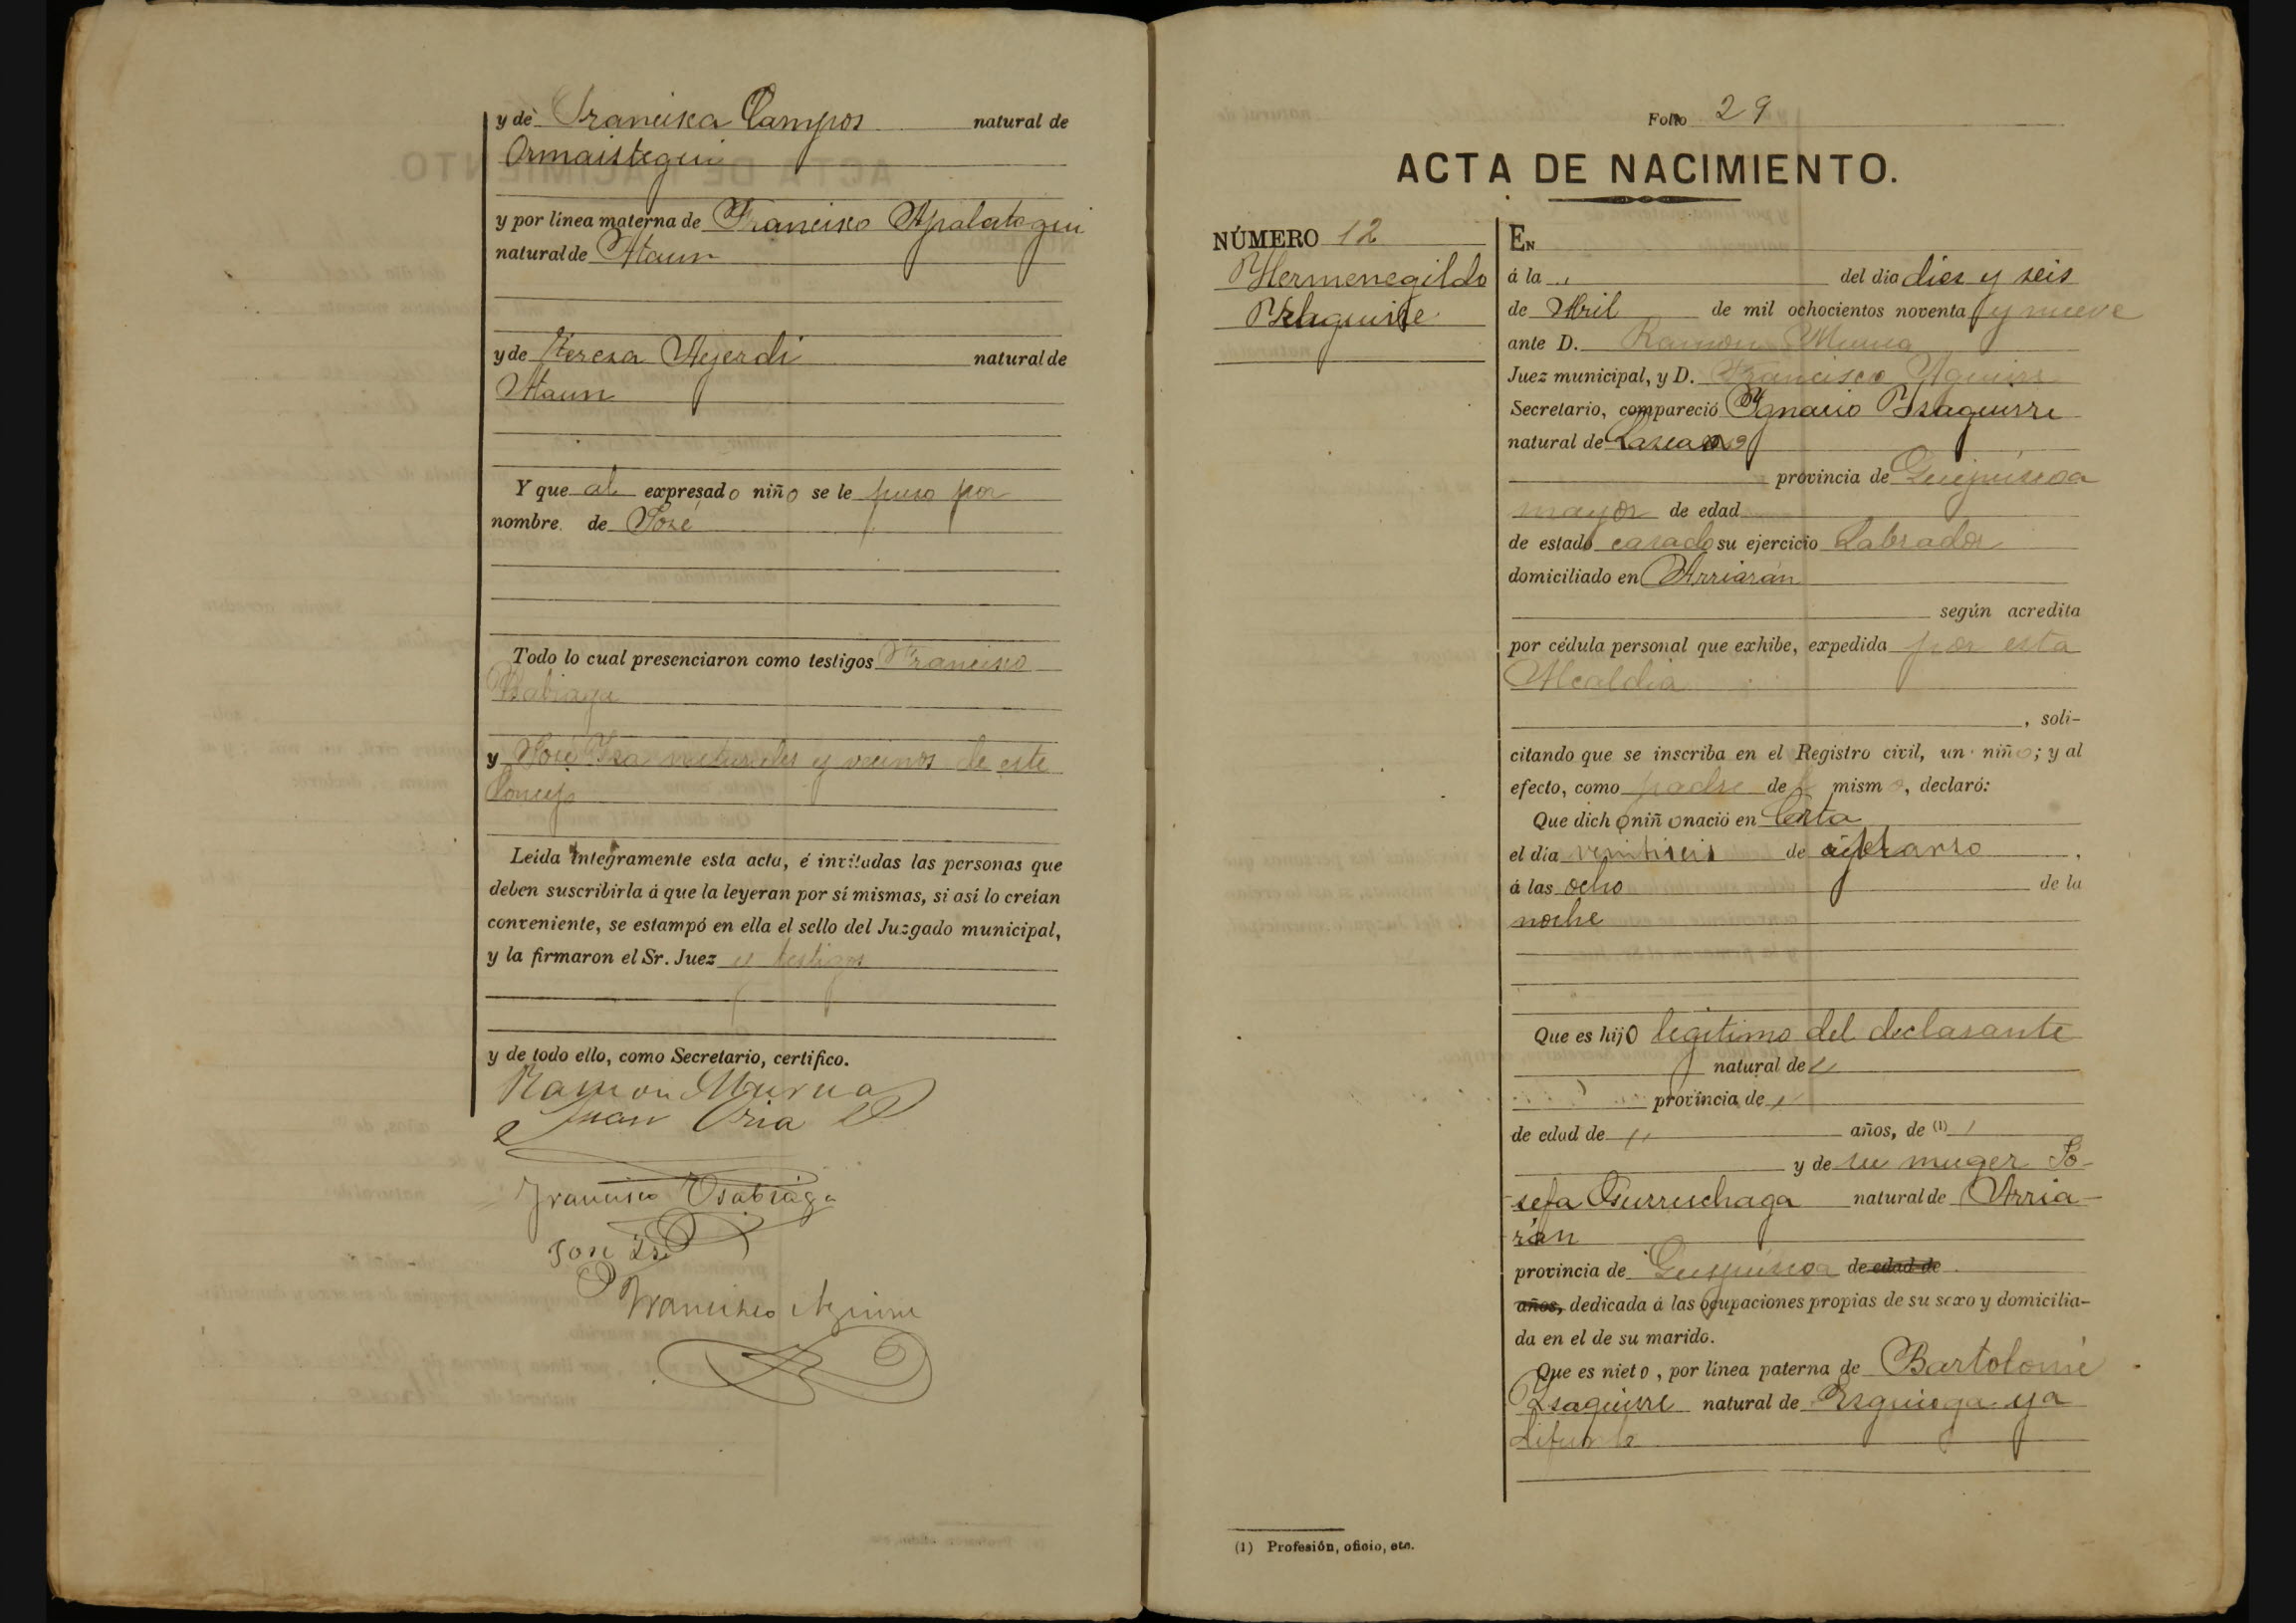 y de Francisca Campos natural de
Ormaistegui
y por línea materna de Francisco Apalategui
natural de Ataun
y de Teresa Ayerdi natural de
Ataun
Y que al expresado niño se le puso por
nombre de José
Todo lo cual presenciaron como testigos Francisco
Usabiaga
y José Isa naturales y vecinos de este
Concejo
Leída íntegramente esta acta, é invitadas las personas que
deben suscribirla á que la leyeran por sí mismas, si así lo creían
conveniente, se estampó en ella el sello del Juzgado municipal,
y la firmaron el Sr. Juez y testigos
y de todo ello, como Secretario, certifico.
Ramon Murua
Juan Oria
Francisco Usabiaga
José
Francisco Aguirre
Folio 29
ACTA DE NACIMIENTO.
NÚMERO 12
Hermenegildo
Ysaguirre
EN
á la del día diez y seis
de Abril de mil ochocientos noventa y nueve
ante D. Ramon Murua
Juez municipal, y D. Francisco Aguirre
Secretario, compareció Ygnacio Ysaguirre
natural de Lazcano
provincia de Guipúzcoa
mayor de edad
de estado casado su ejercicio Labrador
domiciliado en Arriarán
según acredita
por cédula personal que exhibe, expedida por esta
Alcaldia
, soli-
citando que se inscriba en el Registro civil, un niño; y al
efecto, como padre del mismo, declaró:
Que dicho niño nació en
el día veintiseis de
á las ocho de la
noche
Que es hijo legitimo del declarante
natural de "
provincia de "
de edad de " años, de (1) "
y de su muger Jo-
sefa Gurruchaga natural de Arria-
rán
provincia de Guipúzcoa de edad de
años, dedicada á las ocupaciones propias de su sexo y domicilia-
da en el de su marido.
Que es nieto, por línea paterna de Bartolomé
Ysaguirre natural de Esquioga ya
difunto
(1) Profesión, oficio, etc.